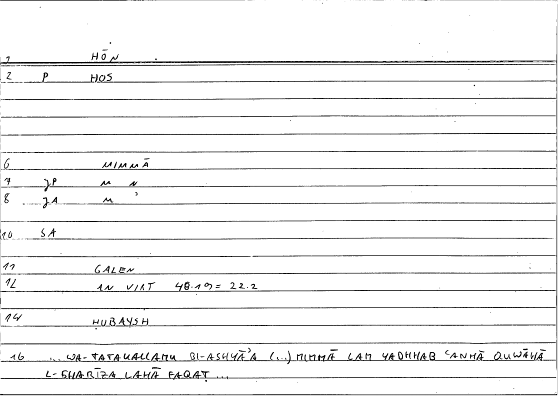 1 HŌN
2 P HOS
6 MIMMĀ
7 JP M N
8 JA M ʾ
10 SA
11 GALEN
12 AN VIRT 48.19 = 22.2
14 HUBAYSH
16 ... WA-TATAKALLAMU BI-ASHYĀʾA (...) MIMMĀ LAM YADHHAB ʿANHĀ QUWĀHĀ
L-GHARĪZA LAHĀ FAQAṬ ...